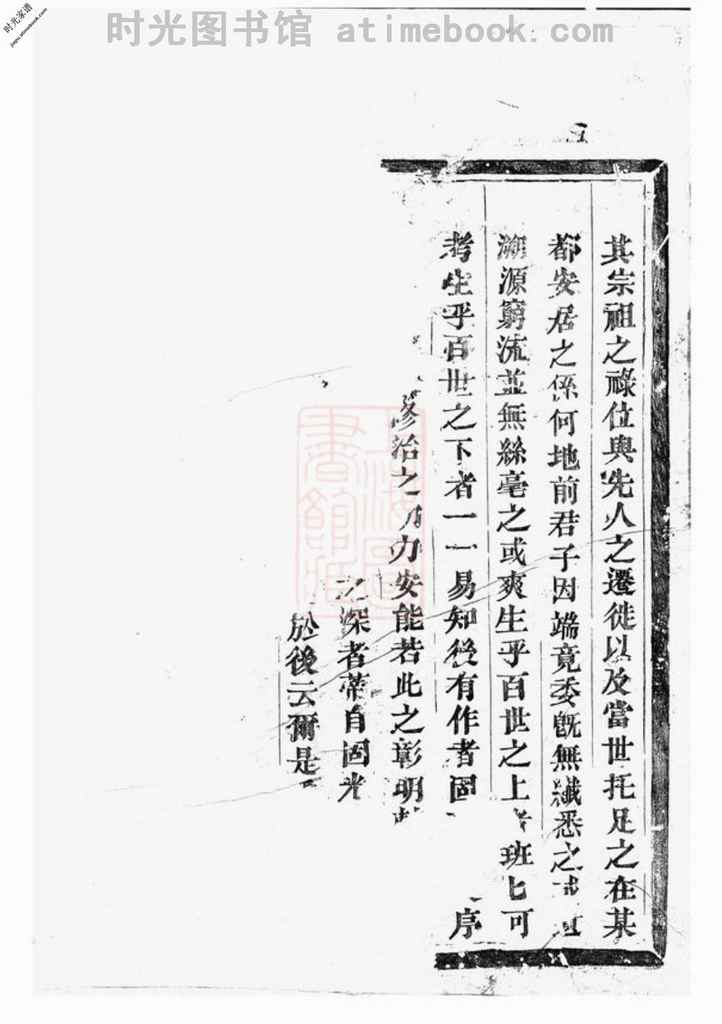 时光图书馆 atimebook.com
时光家谱
jiapu.atimebook.com
其宗祖之祿位與先人之遷徙以及當世托足之在某
都安居之係何地前君子因端竟委旣無纖悉之
溯源窮流並無絲毫之或爽生乎百世之上者班七可
考生乎百世之下者一一易知後有作者固 序
修治之力安能若此之彰明
之深者蒂自固光
於後云爾是